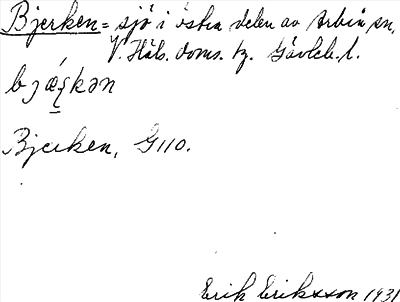 Bjerken = sjö i östra delen av Arbrå sn,
V. Häls. doms. tg. Gävleb. l.
bjǽ̣kən
Bjerken, G110.
Erik Eriksson 1931